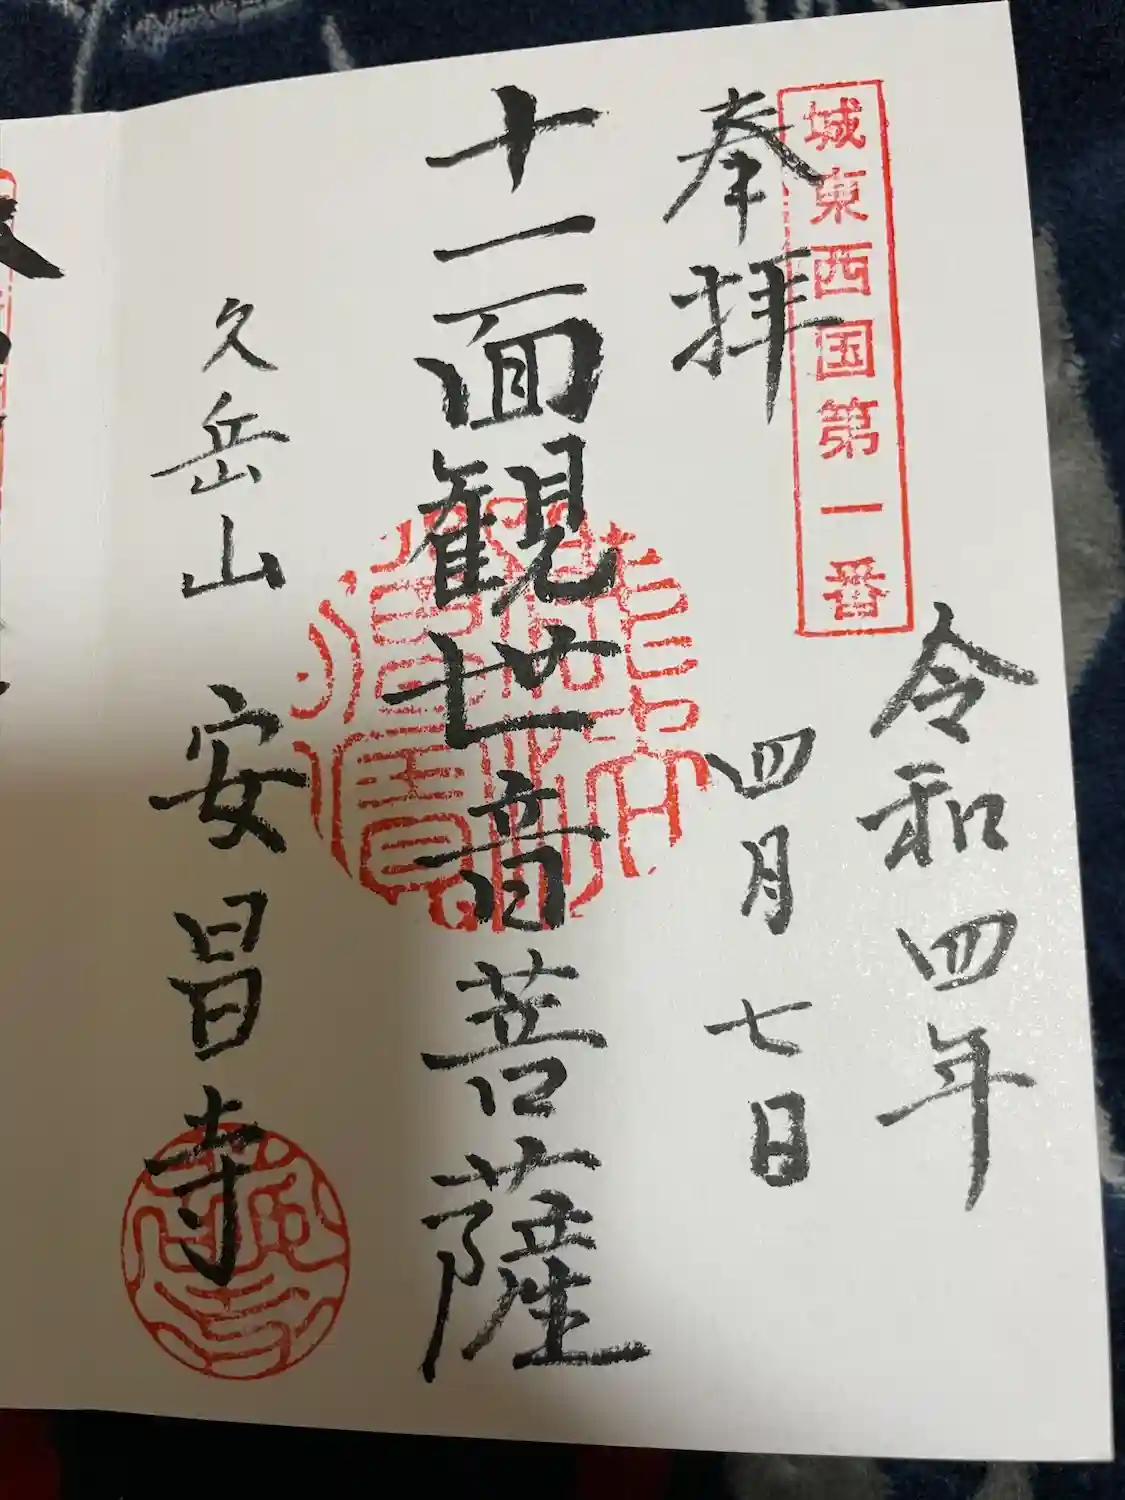 城東西国第一番
令和四年
奉拝
四月七日
十一面観世音菩薩
久岳山
安昌寺